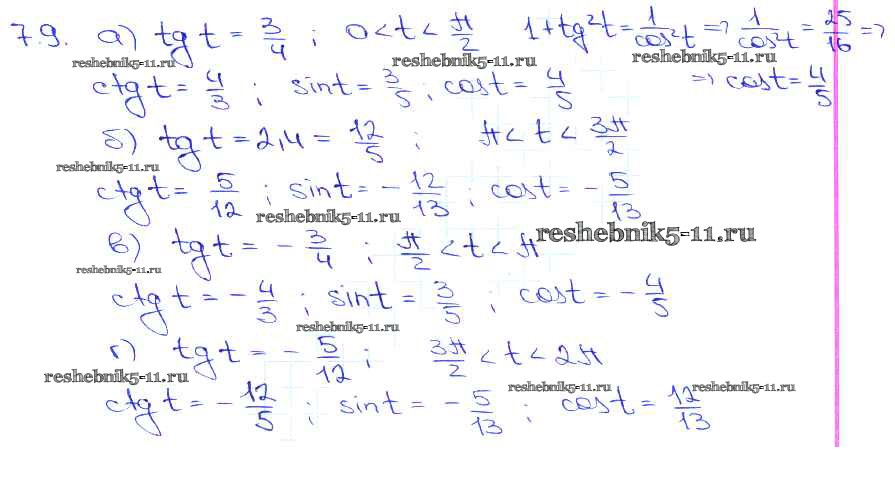 7.9. а) tg t = 3/4 ; 0 < t < π/2 1 + tg²t = 1/cos²t => 1/cos²t = 25/16 =>
reshebnik5-11.ru reshebnik5-11.ru reshebnik5-11.ru
ctg t = 4/3 ; sin t = 3/5 ; cos t = 4/5 => cos t = 4/5
б) tg t = 2,4 = 12/5 ; π < t < 3π/2
reshebnik5-11.ru
ctg t = 5/12 ; sin t = - 12/13 ; cos t = - 5/13
reshebnik5-11.ru
в) tg t = - 3/4 ; π/2 < t < π reshebnik5-11.ru
reshebnik5-11.ru
ctg t = - 4/3 ; sin t = 3/5 ; cos t = - 4/5
reshebnik5-11.ru
г) tg t = - 5/12 ; 3π/2 < t < 2π
reshebnik5-11.ru reshebnik5-11.ru reshebnik5-11.ru
ctg t = - 12/5 ; sin t = - 5/13 ; cos t = 12/13